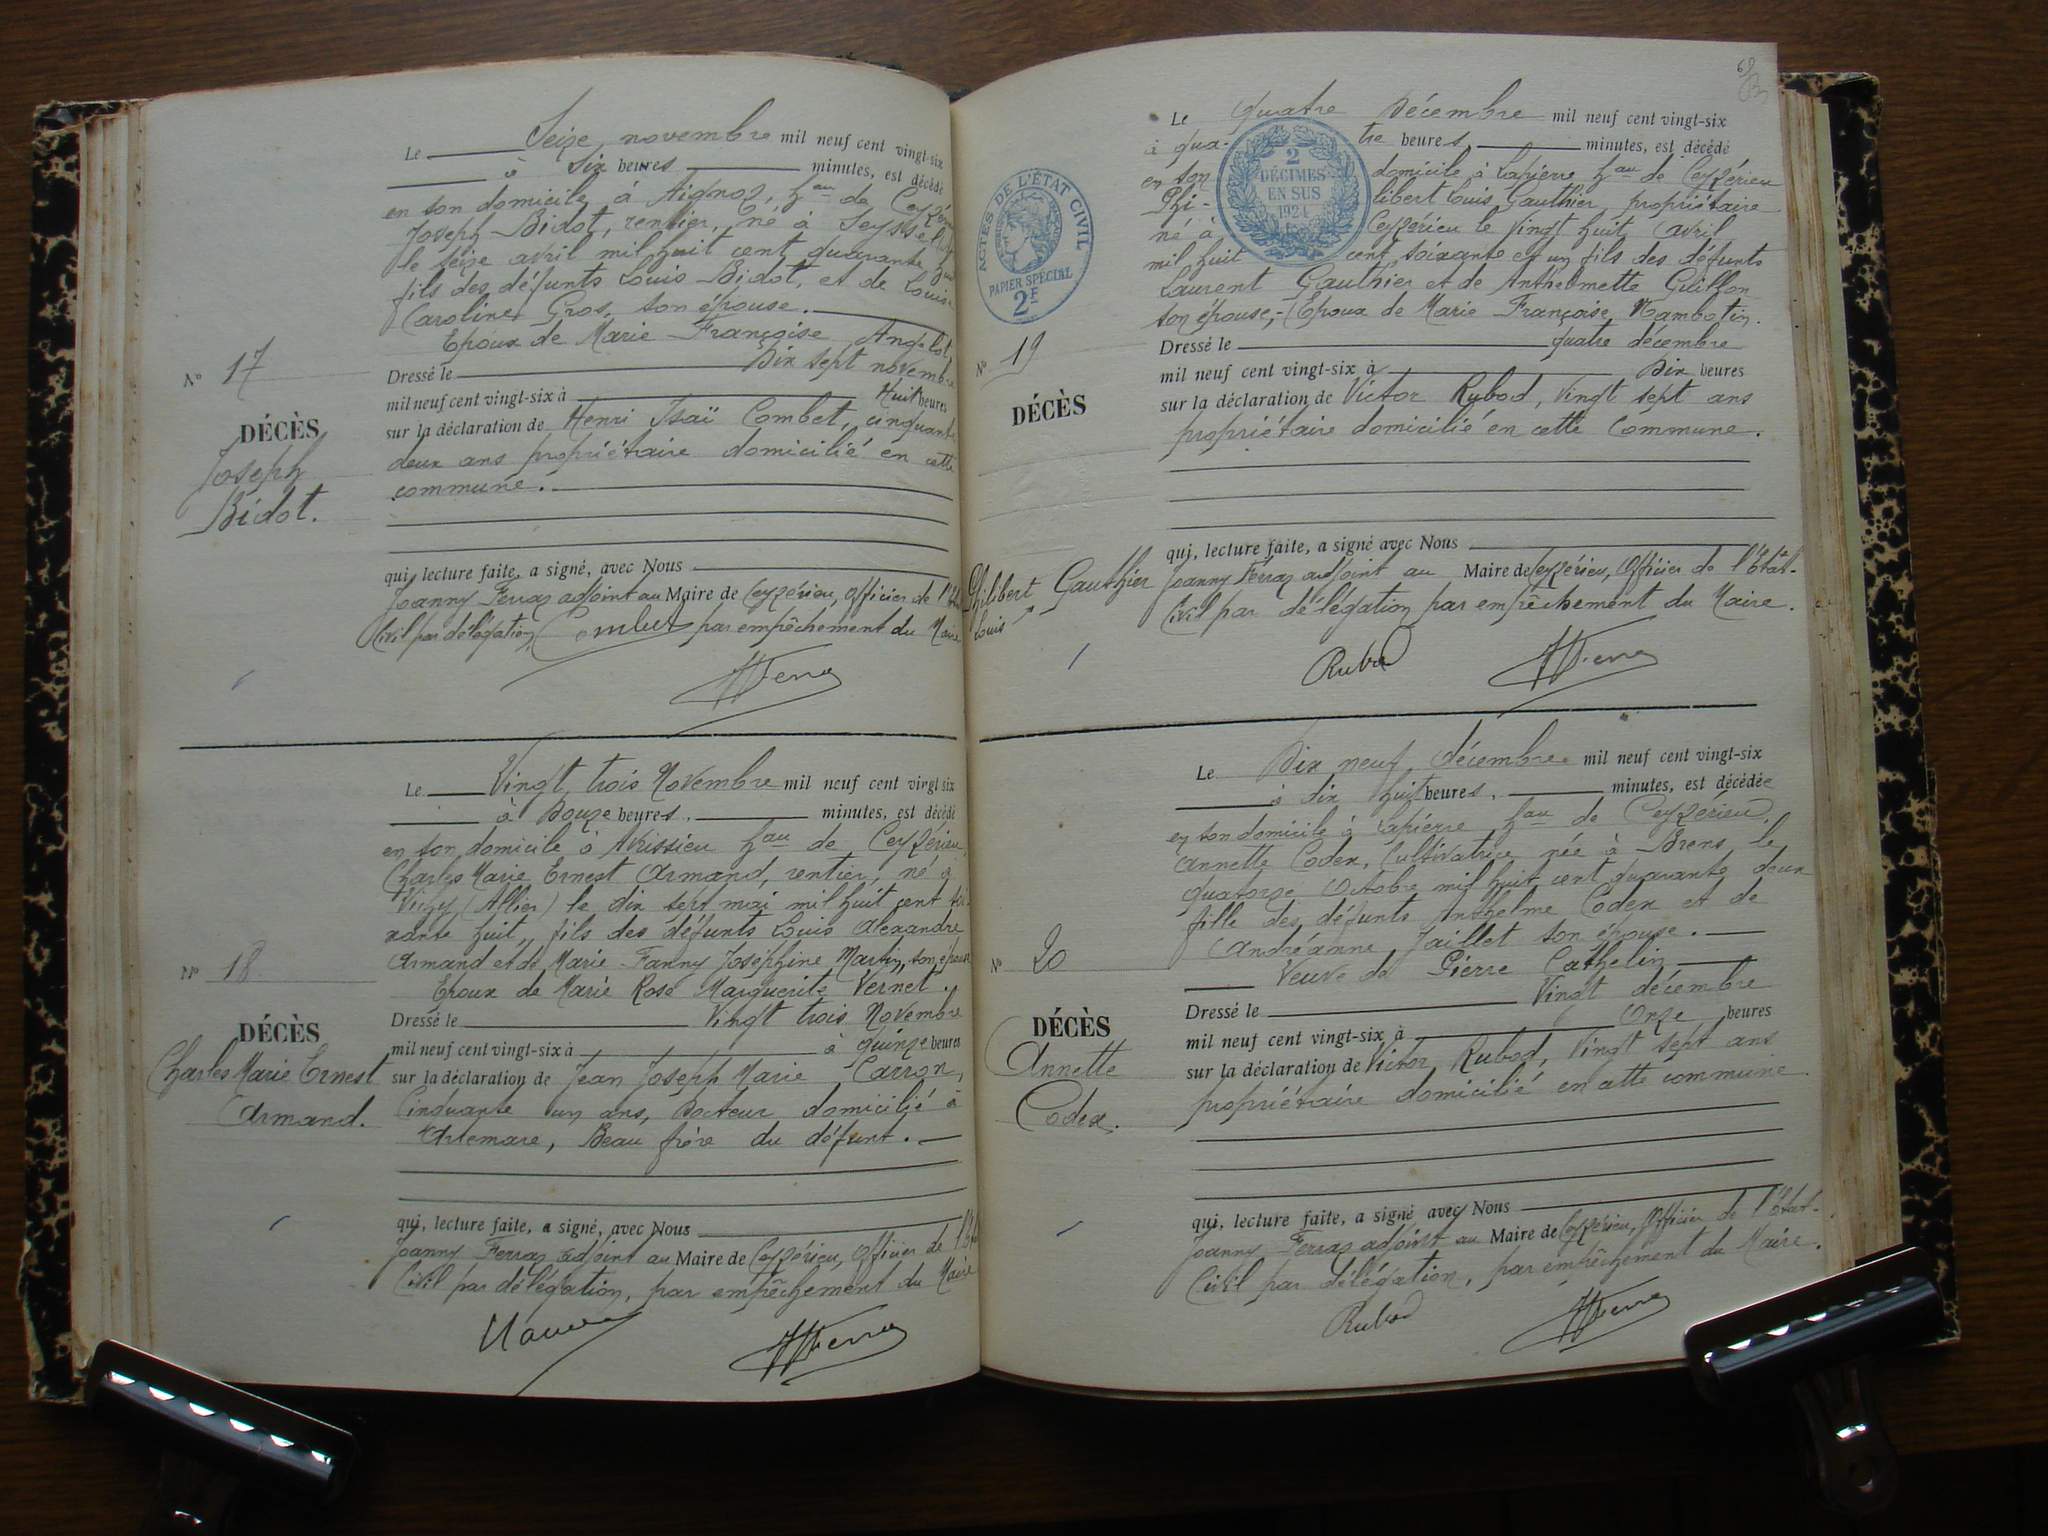 Le Seize novembre mil neuf cent vingt-six
à Six heures minutes, est décédé
en son domicile à Aignoz, hau de
Joseph Bidot, rentier, né à
le seize avril mil huit cent quarante
fils des défunts Louis Bidot, et de Louise
Caroline Gros, son épouse.
Epoux de Marie Françoise Angelot,
Dressé le Dix sept novembre
mil neuf cent vingt-six à Huit heures
sur la déclaration de Henri Isaï Combet, cinquante
deux ans propriétaire domicilié en cette
commune.
N° 17
DÉCÈS
Joseph
Bidot.
qui, lecture faite, a signé, avec Nous
Joanny Ferraz adjoint au Maire de Ceyzérieu, officier de
Civil par délégation, Combet par empêchement du Maire
JFerraz
Le Vingt trois Novembre mil neuf cent vingt-six
à Douze heures, minutes, est décédé
en son domicile à Avrissieu hau de Ceyzérieu
Charles Marie Ernest Armand, rentier, né à
Vichy (Allier) le dix sept mai mil huit cent soi-
xante huit, fils des défunts Louis Alexandre
Armand et de Marie Fanny Joséphine Martin, son épouse
Epoux de Marie Rose Marguerite Vernet.
Dressé le Vingt trois Novembre
mil neuf cent vingt-six à à quinze heures
sur la déclaration de Jean Joseph Marie Carron,
Cinquante un ans, Docteur domicilié à
Artemare, Beau frère du défunt.
N° 18
DÉCÈS
Charles Marie Ernest
Armand.
qui, lecture faite, a signé, avec Nous
Joanny Ferraz adjoint au Maire de Ceyzérieu, officier de
Civil par délégation, par empêchement du Maire
JFerraz
ACTES DE L'ÉTAT CIVIL
PAPIER SPÉCIAL
2F
2
DÉCIMES
EN SUS
1924
Le quatre Décembre mil neuf cent vingt-six
à qua- tre heures, minutes, est décédé
en son domicile à Lapierre hau de Ceyzérieu
Phi- libert Louis Gauthier, propriétaire
né à Ceyzérieu le Vingt huit Avril
mil huit cent soixante et un fils des défunts
Laurent Gauthier et de Anthelmette Guillon
son épouse,- Epoux de Marie Françoise Mambotin.
Dressé le quatre décembre
mil neuf cent vingt-six à Dix heures
sur la déclaration de Victor Rubod, Vingt sept ans
propriétaire domicilié en cette commune.
N° 19
DÉCÈS
Philibert Gauthier
Louis
qui, lecture faite, a signé avec Nous
Joanny Ferraz adjoint au Maire de Ceyzérieu, Officier de l'Etat-
Civil par délégation par empêchement du Maire.
Rubod JFerraz
Le Dix neuf décembre mil neuf cent vingt-six
à dix huit heures, minutes, est décédée
en son domicile à Lapierre hau de Ceyzérieu,
Annette Codex, Cultivatrice née à Brens le
quatorze Octobre mil huit cent quarante deux
fille des défunts Anthelme Codex et de
Andréanne Jaillet son épouse.
Veuve de Pierre Cathelin
Dressé le Vingt décembre
mil neuf cent vingt-six à Onze heures
sur la déclaration de Victor Rubod, Vingt sept ans
propriétaire domicilié en cette commune
N° 20
DÉCÈS
Annette
Codex.
qui, lecture faite, a signé avec Nous
Joanny Ferraz adjoint au Maire de Ceyzérieu, Officier de l'Etat-
Civil par délégation, par empêchement du Maire.
Rubod JFerraz